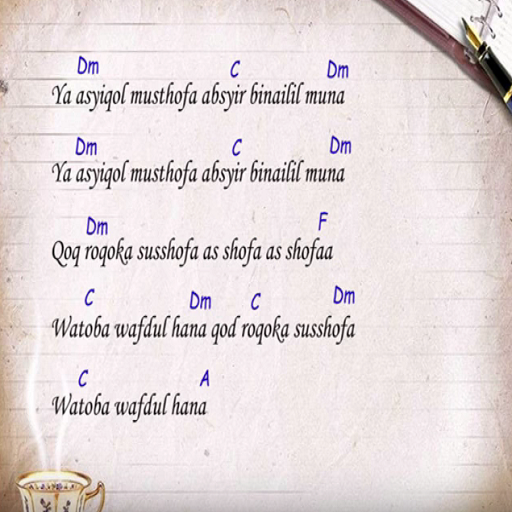 Dm C Dm
Ya asyiqol musthofa absyir binailil muna
Dm C Dm
Ya asyiqol musthofa absyir binailil muna
Dm F
Qoq roqoka susshofa as shofa as shofaa
C Dm C Dm
Watoba wafdul hana qod roqoka susshofa
C A
Watoba wafdul hana